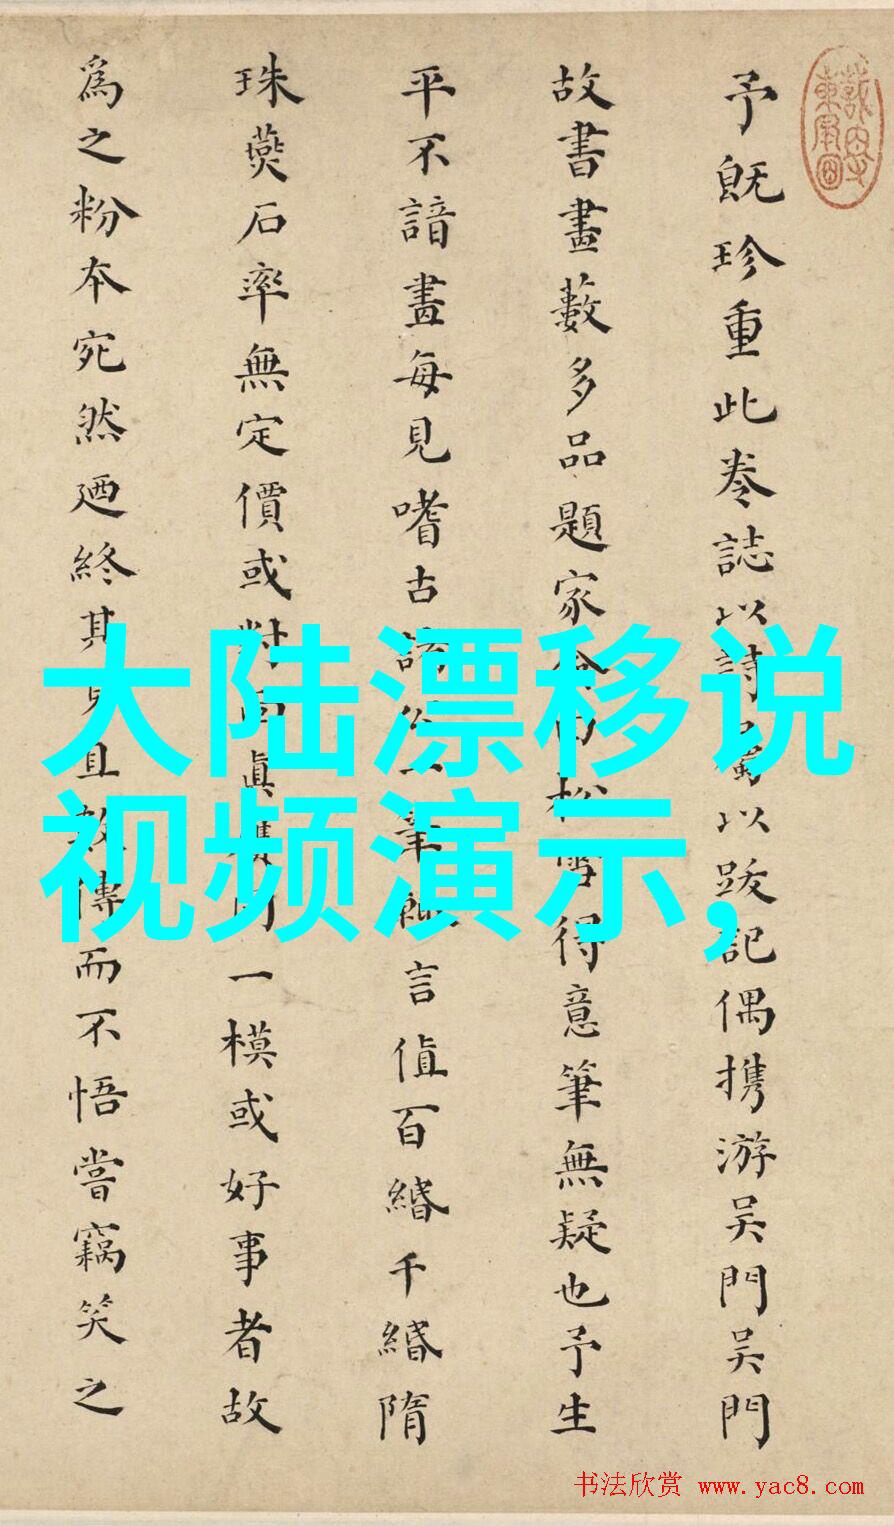 予既珍重此卷誌以詩以跋記偶携游吴門吴門
故書畫藪多品題家僉曰松雪得意筆無疑也予生
平不諳畫每見嗜古一筆輒言値百緡千緡隋
珠燕石率無定價或對面眞贋同一模或好事者故
為之粉本宛然迺終其身且傳而不悟嘗竊笑之
大陆漂移说
视频演示,
书法欣赏 www.yac8.com